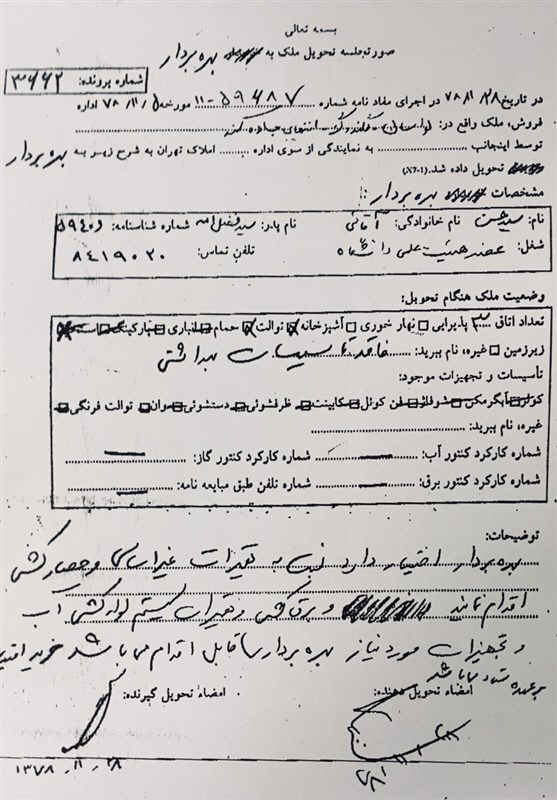 بسمه تعالی
صورتجلسه تحویل ملک به بهره بردار
شماره پرونده: ۳۶۶۲
در تاریخ ۷۸/۱۱/۲۸ در اجرای مفاد نامه شماره ۵۹۶۸۷-۱۱ مورخه ۷۸/۱۱/ اداره
فروش، ملک واقع در: انتهای جاده
توسط اینجانب به نمایندگی از سوی اداره املاک تهران به شرح زیر به بهره بردار
تحویل داده شد.
مشخصات بهره بردار:
نام: سید حسن نام خانوادگی: آقائی نام پدر: سید فضل اله شماره شناسنامه: ۵۹۴۰۶
شغل: عضو هیئت علمی دانشگاه تلفن تماس: ۸۴۱۹۰۲۰
وضعیت ملک هنگام تحویل:
تعداد اتاق ۳ پذیرایی نهار خوری آشپزخانه توالت حمام انباری پارکینگ
زیرزمین غیره، نام ببرید: فاقد تاسیسات بهداشتی
تأسیسات و تجهیزات موجود:
کولر آبگرمکن شوفاژ فن کوئل کابینت ظرفشوئی دستشوئی وان توالت فرنگی
غیره، نام ببرید:
شماره کارکرد کنتور آب: — شماره کارکرد کنتور گاز: —
شماره کارکرد کنتور برق: — شماره تلفن طبق مبایعه نامه: —
توضیحات:
بهره بردار اختیار دارد نسبت به تغییرات غیراساسی و حصارکشی
اقدام نماید و برق کشی و تغییرات سیستم لوله کشی آب
و تجهیزات مورد نیاز بهره بردار قابل اقدام می باشد خرید
بر عهده ستاد می باشد
امضاء تحویل دهنده: امضاء تحویل گیرنده:
۷۸/۱۱/۲۸ ۱۳۷۸/۱۱/۲۸